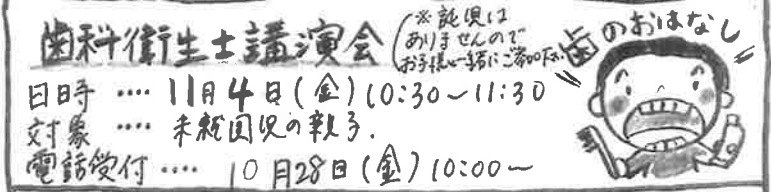 歯科衛生士講演会
※託児は
ありませんので
お子様と一緒にご参加下さい
歯のおはなし
日時 ···· 11月4日(金)10:30~11:30
対象 ···· 未就園児の親子.
電話受付 ···· 10月28日(金)10:00~